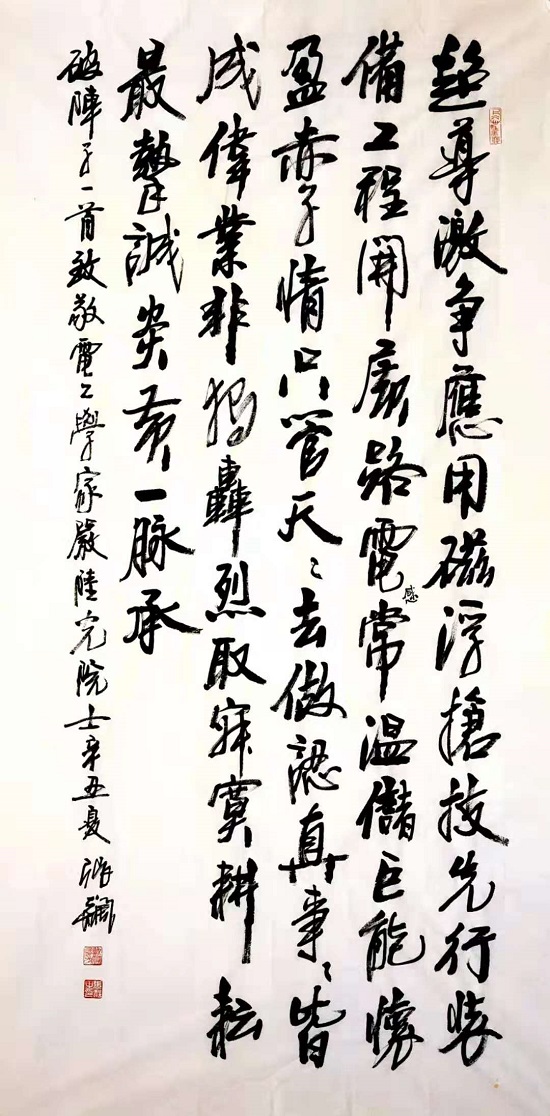 超導激爭應用磁浮搶拔先行裝
備工程開廣路電感常溫儲巨能懷
盈赤子情只管天〻去做認真事〻皆
成偉業非獨轟烈取寂寞耕耘
最摯誠炎黃一脈承
破陣子一首致敬電工學家嚴陸光院士辛丑夏